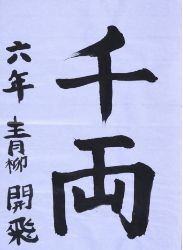 千両
六年 青柳 開飛